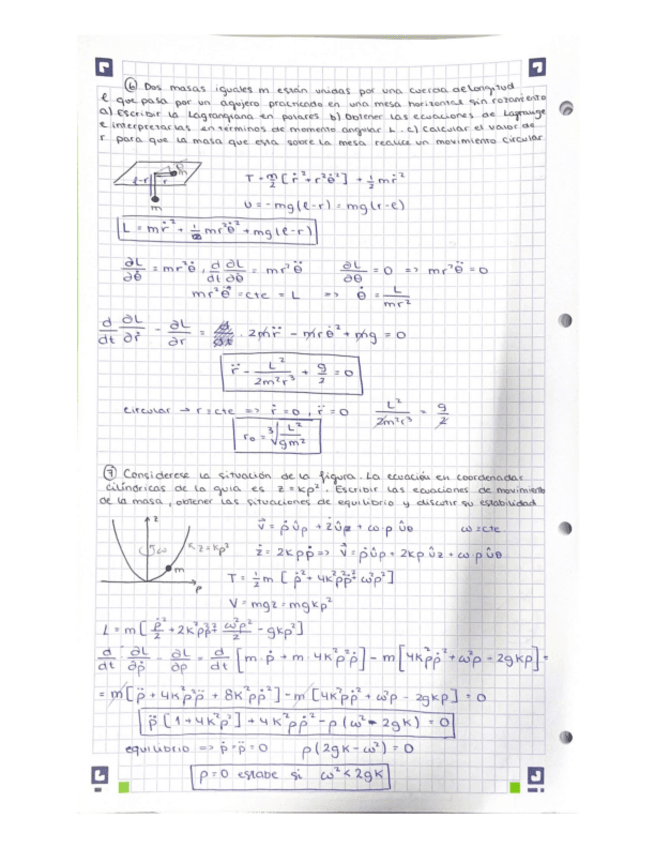 ⑥ Dos masas iguales m están unidas por una cuerda de longitud
ℓ que pasa por un agujero practicado en una mesa horizontal sin rozamiento
a) Escribir la Lagrangiana en polares b) Obtener las ecuaciones de Lagrange
e interpretarlas en términos de momento angular L. c) Calcular el valor de
r para que la masa que está sobre la mesa realice un movimiento circular
ℓ-r r m
m
T = m/2 [ṙ² + r²θ̇²] + 1/2 mṙ²
U = -mg(ℓ-r) = mg(r-ℓ)
L = mṙ² + 1/2 mr²θ̇² + mg(ℓ-r)
∂L/∂θ̇ = mr²θ̇, d/dt ∂L/∂θ̇ = mr²θ̈ ∂L/∂θ = 0 => mr²θ̈ = 0
mr²θ̇ = cte = L => θ̇ = L/mr²
d/dt ∂L/∂ṙ - ∂L/∂r = 2mr̈ - mrθ̇² + mg = 0
r̈ - L²/2m²r³ + g/2 = 0
circular → r = cte => ṙ = 0, r̈ = 0 L²/2m²r³ = g/2
r₀ = ∛(L²/gm²)
⑦ Considerese la situación de la figura. La ecuación en coordenadas
cilíndricas de la guia es z = kρ². Escribir las ecuaciones de movimiento
de la masa, obtener las situaciones de equilibrio y discutir su estabilidad
z ω z = kρ² m ρ
v⃗ = ρ̇ûρ + żûz + ω·ρ ûθ ω = cte.
ż = 2kρρ̇ => v⃗ = ρ̇ûρ + 2kρρ̇ ûz + ω·ρ ûθ
T = 1/2 m [ρ̇² + 4k²ρ²ρ̇² + ω²ρ²]
V = mgz = mgkρ²
L = m[ρ̇²/2 + 2k²ρ²ρ̇² + ω²ρ²/2 - gkρ²]
d/dt ∂L/∂ρ̇ - ∂L/∂ρ = d/dt [m·ρ̇ + m·4k²ρ²ρ̇] - m[4k²ρρ̇² + ω²ρ - 2gkρ] =
= m[ρ̈ + 4k²ρ²ρ̈ + 8k²ρρ̇²] - m[4k²ρρ̇² + ω²ρ - 2gkρ] = 0
ρ̈[1 + 4k²ρ²] + 4k²ρρ̇² - ρ(ω² - 2gk) = 0
equilibrio => ρ̇ = ρ̈ = 0 ρ(2gk - ω²) = 0
ρ = 0 estabe si ω² < 2gk